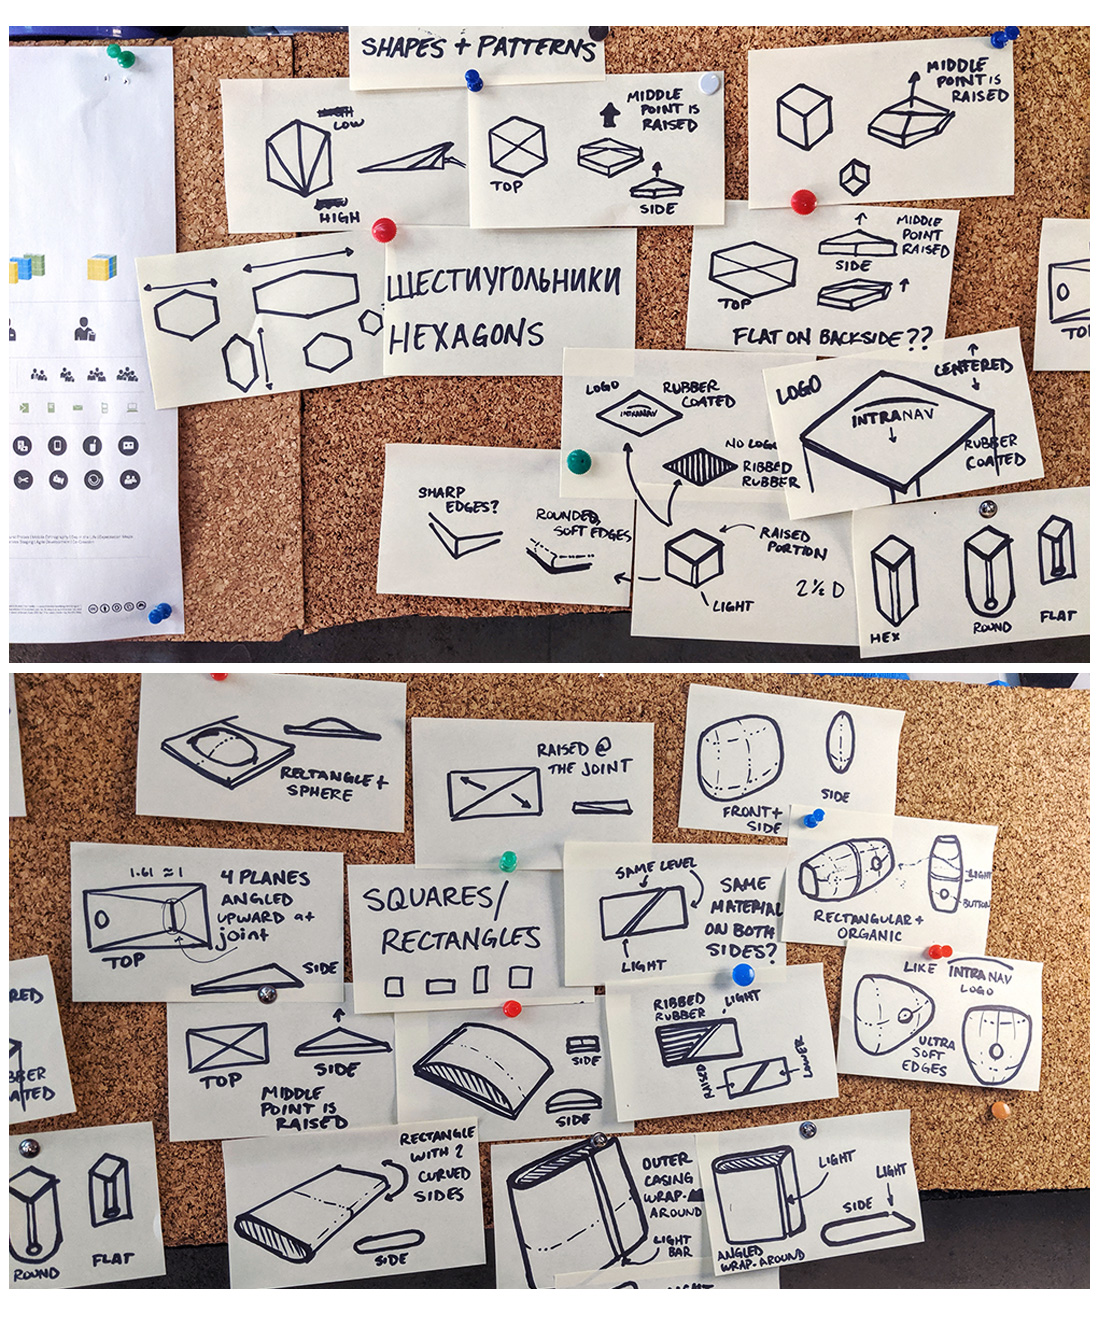 SHAPES + PATTERNS
LOW
HIGH
MIDDLE
POINT IS
RAISED
TOP
SIDE
MIDDLE
POINT IS
RAISED
ШЕСТИУГОЛЬНИКИ
HEXAGONS
MIDDLE
POINT
RAISED
SIDE
TOP
FLAT ON BACKSIDE??
TOP
LOGO
RUBBER
COATED
INTRANAV
NO LOGO
RIBBED
RUBBER
LOGO
CENTERED
INTRANAV
RUBBER
COATED
SHARP
EDGES?
ROUNDED,
SOFT EDGES
RAISED
PORTION
2½ D
LIGHT
HEX
ROUND
FLAT
RECTANGLE +
SPHERE
RAISED @
THE JOINT
FRONT +
SIDE
SIDE
1.61 ≈ 1
4 PLANES
ANGLED
UPWARD at
joint
TOP
SIDE
SQUARES/
RECTANGLES
SAME LEVEL
SAME
MATERIAL
ON BOTH
SIDES?
LIGHT
LIGHT
BUTTON
RECTANGULAR +
ORGANIC
LIKE INTRANAV
LOGO
ULTRA
SOFT
EDGES
TOP
SIDE
MIDDLE
POINT IS
RAISED
SIDE
SIDE
RIBBED
RUBBER
LIGHT
RAISED
LOWER
ROUND
FLAT
RECTANGLE
WITH 2
CURVED
SIDES
SIDE
OUTER
CASING
WRAP-
AROUND
LIGHT
BAR
LIGHT
LIGHT
SIDE
ANGLED
WRAP-AROUND